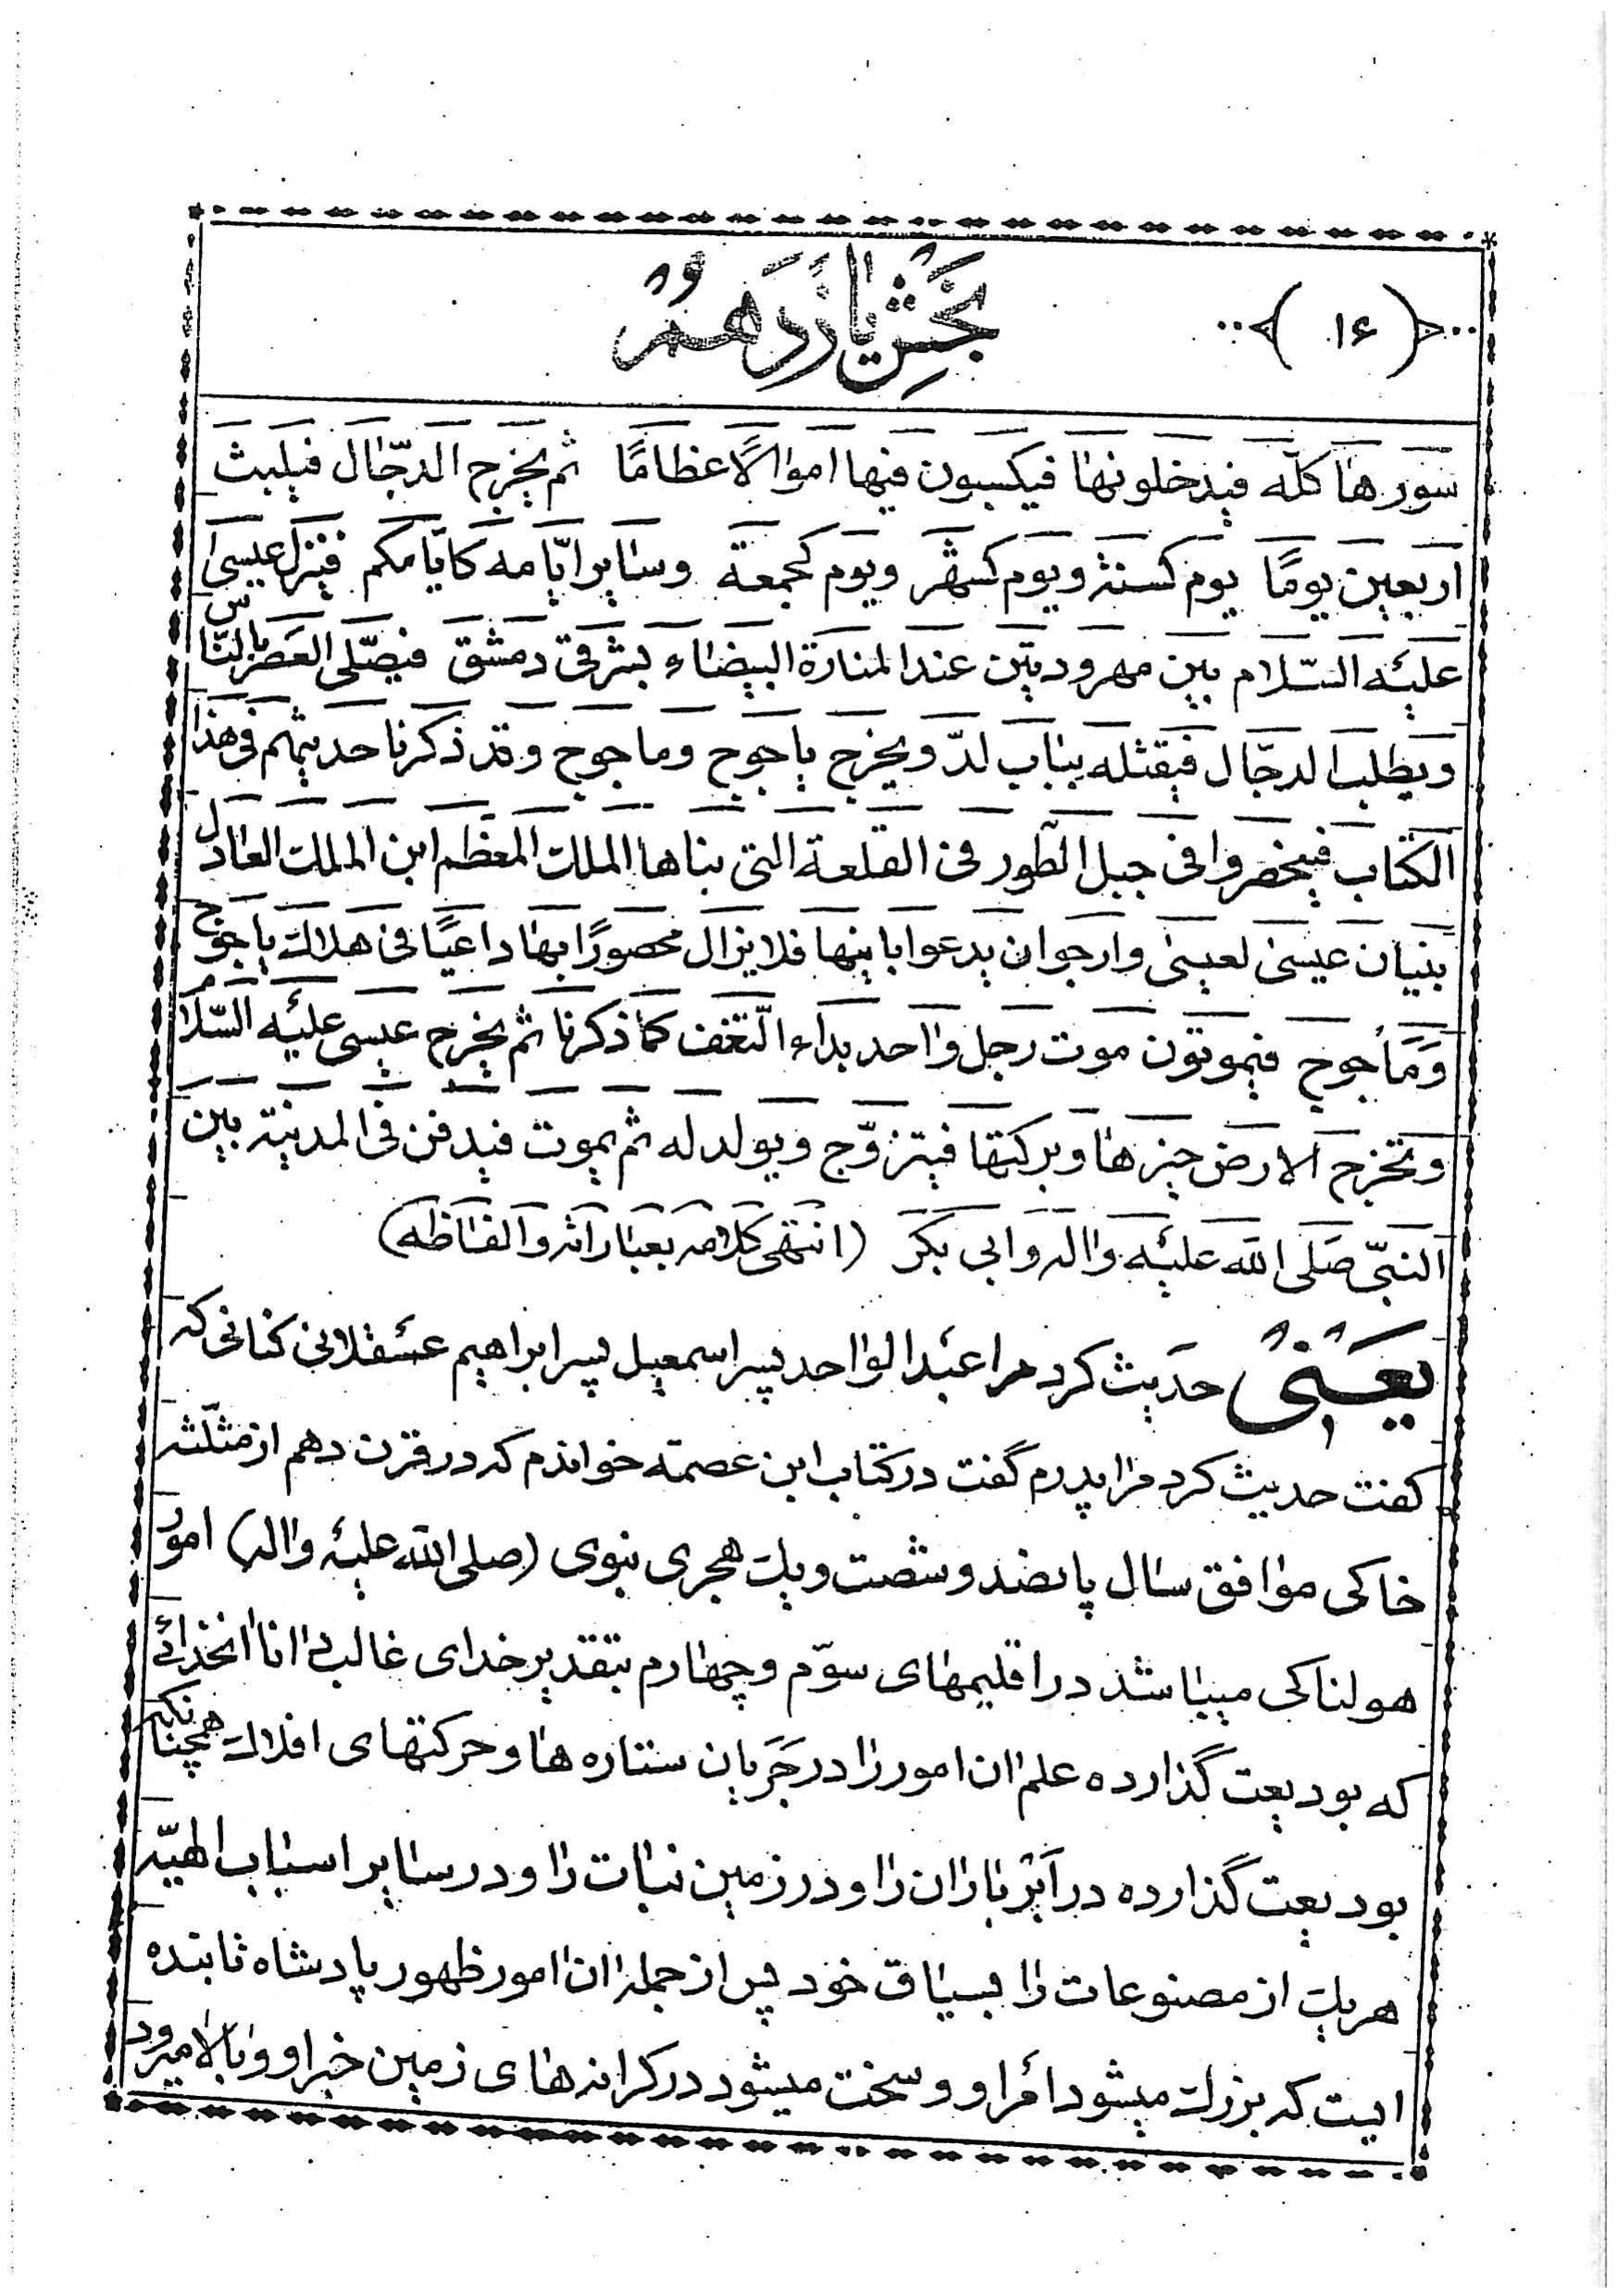 (۱۶)
بخش یازدهم
سورها كلّه فيدخلونها فيكسبون فيها اموالًا عظامًا ثم يخرج الدّجّال فيلبث
اربعين يومًا يوم كسنة ويوم كشهر ويوم كجمعة وساير ايّامه كايّامكم فينزل عيسى
عليه السّلام بين مهرودتين عند المنارة البيضاء بشرقى دمشق فيصّلى العصر بالنّاس
ويطلب الدجّال فيقتله بباب لدّ ويخرج ياجوج وماجوج وقد ذكرنا حديثهم فى هذا
الكتاب فيحضروا فى جبل الطور فى القلعة التى بناها الملك المعظّم ابن الملك العادل
بنيان عيسى لعيسى وارجوان يدعوا بابنها فلا يزال محصورًا بها داعيًا فى هلاك ياجوج
وماجوج فيموتون موت رجل واحد بداء النّغف كما ذكرنا ثم يخرج عيسى عليه السّلام
وتخرج الارض خيرها وبركتها فيتزوّج ويولد له ثم يموت فيدفن فى المدينة بين
النبىّ صلى الله عليه واله وابى بكر (انتهى كلامه بعباراته والفاظه)
یعنی حدیث کرد مرا عبدالواحد پسر اسمعیل پسر ابراهیم عسقلانی کنانی که
گفت حدیث کرد مرا پدرم گفت در کتاب ابن عصمة خواندم که در قرن دهم از مثلّثه
خاکی موافق سال پانصد و شصت و یک هجری نبوی (صلی الله علیه واله) امور
هولناکی میباشد در اقلیمهای سوّم و چهارم بتقدیر خدای غالب دانا انخدائی
که بودیعت گذارده علم ان امور را در جَرَیان ستاره ها و حرکتهای افلاک همچنانکه
بودیعت گذارده در اَبر باران را و در زمین نبات را و در سایر اسباب الهیّه
هریک از مصنوعات را بسیاق خود پس از جمله ان امور ظهور پادشاه تابنده
ایست که بزرک میشود امر او و سخت میشود در کرانه های زمین خبر او و بالا میرود